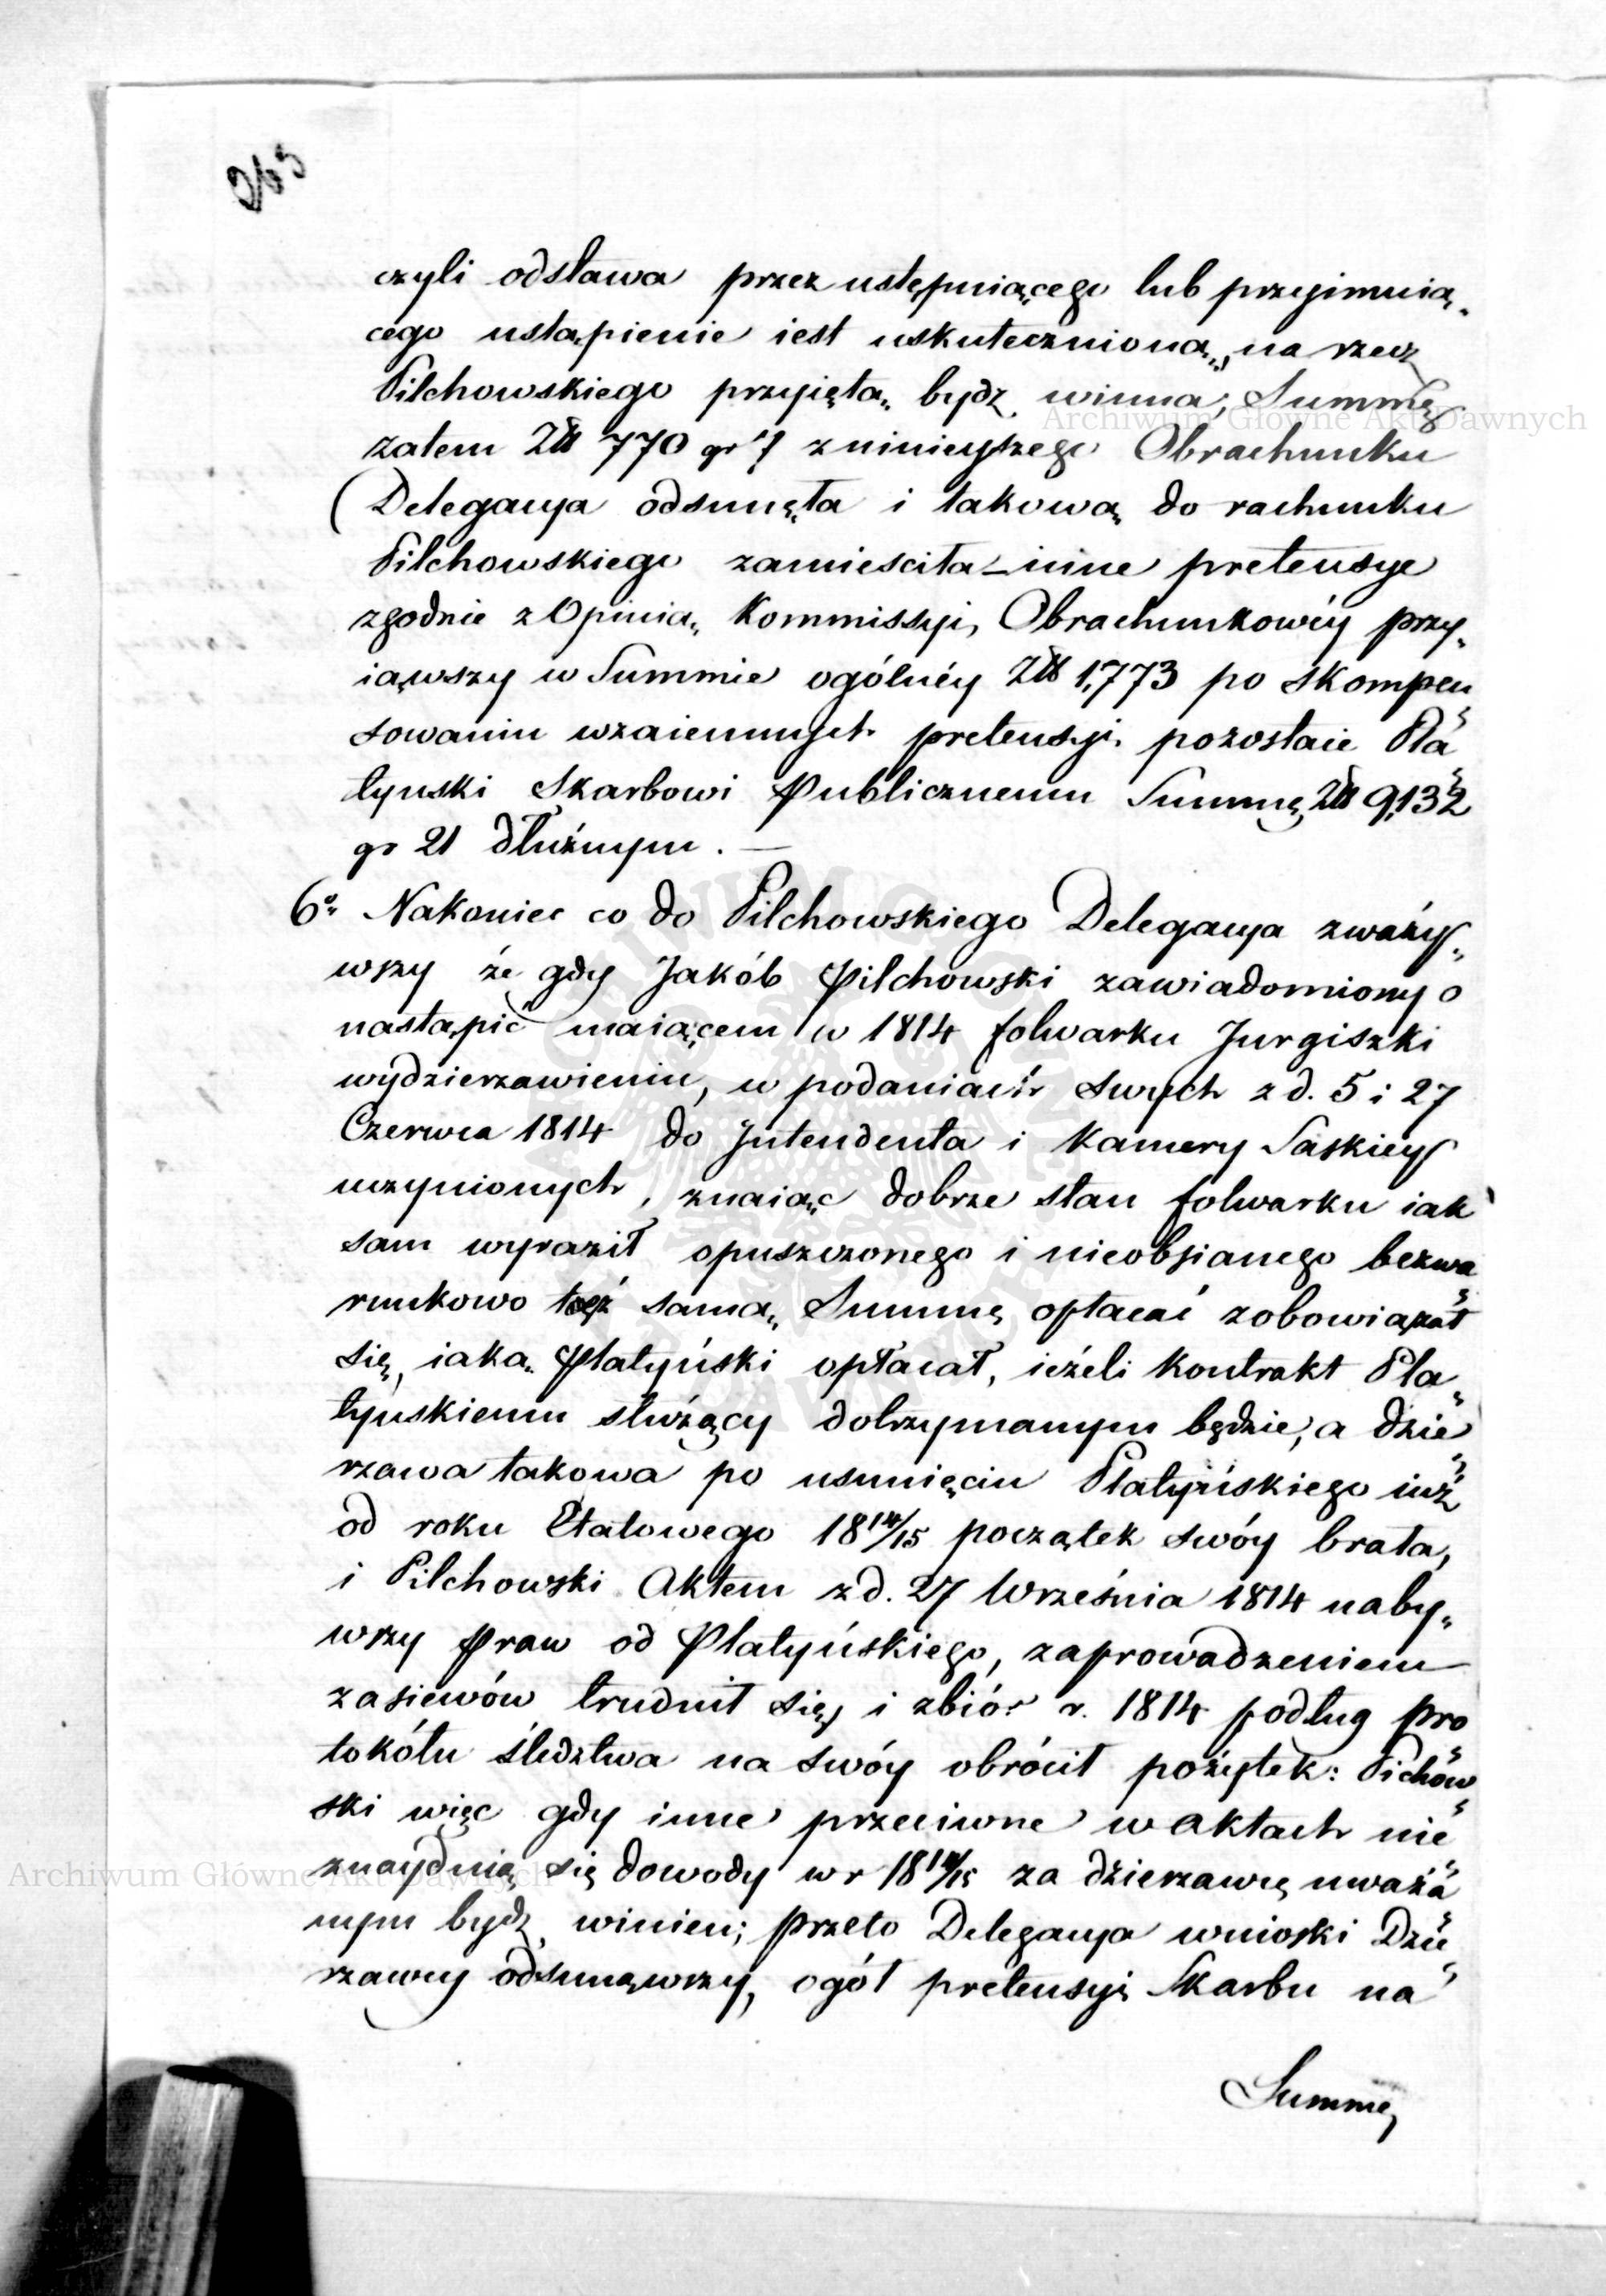 czyli odstawa przez ustępuiącego lub przyimuią„
cego ustąpienie iest uskutecznioną, na rzecz
Pilchowskiego przyiętą bydz winna, Summę
zatem Zł 770 gr 7 z ninieyszego Obrachunku
Delegacya odsunęła i takową do rachunku
Pilchowskiego zamieściła – inne pretensye
zgodnie z Opinią Kommissyi Obrachunkowéy przy„
iąwszy w Summie ogólnéy Zł 1,773 po skompen
sowaniu wzaiemnych pretensyi pozostaie Pła„
tyński Skarbowi Publicznemu Summę Zł 9,132
gr 21 dłużnym. —
6o Nakoniec co do Pilchowskiego Delegacya zważy„
wszy że gdy Jakób Pilchowski zawiadomiony o
nastąpić maiącem w 1814 folwarku Jurgiszki
wydzierzawieniu, w podaniach swych z d. 5 i 27
Czerwca 1814 do Intendenta i Kamery Saskiey
uczynionych, znaiąc dobrze stan folwarku iak
sam wyraził opuszczonego i nieobsianego bezwa„
runkowo też samą Summę opłacać zobowiązał
się, iaką Płatyński opłacał, ieżeli Kontrakt Pła„
tyńskiemu służący dotrzymanym będzie, a dzie„
rzawa takowa po usunięciu Płatyńskiego iuż
od roku Etatowego 1814/15 początek swóy brała,
i Pilchowski Aktem z d. 27 Września 1814 naby„
wszy Praw od Płatyńskiego, zaprowadzeniem
zasiewów trudnił się, i zbiór r. 1814 podług pro„
tokółu śledztwa na swóy obrócił pożytek: Pichow„
ski więc gdy inne przeciwne w aktach nie„
znayduią się dowody w r 1814/15 za dzierzawcę uważa„
nym bydz winien; przeto Delegacya wnioski Dzie„
rzawcy odsunąwszy, ogół pretensyi Skarbu na
Summę
Archiwum Główne Akt Dawnych
Archiwum Główne Akt Dawnych